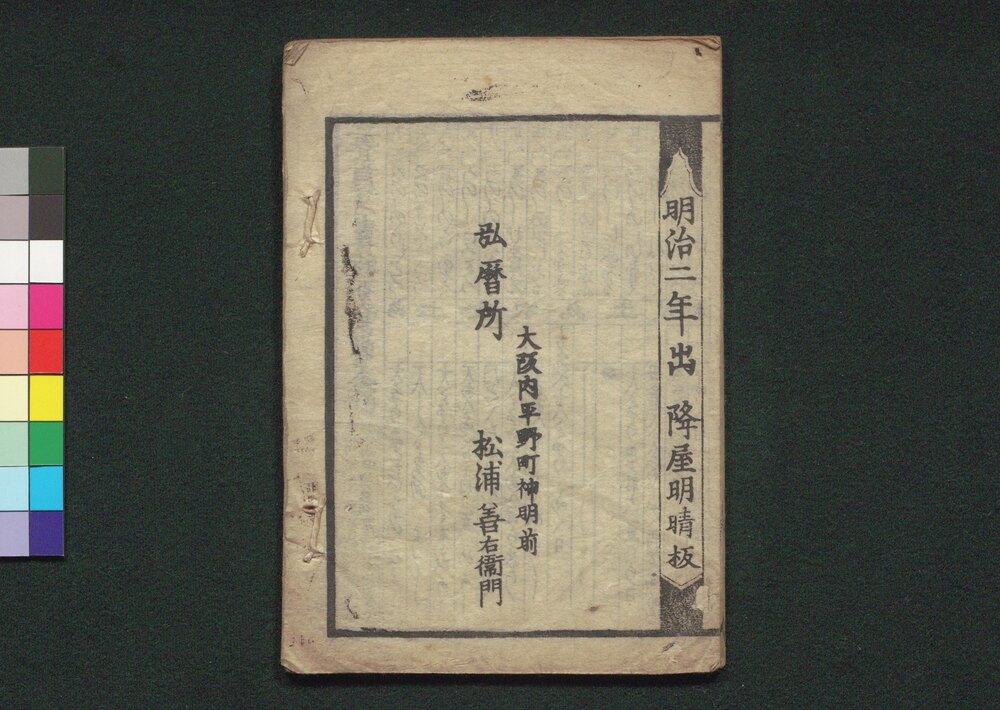 明治二年出 降屋明晴板
大阪内平野町神明前
弘暦所 松浦善右衛門